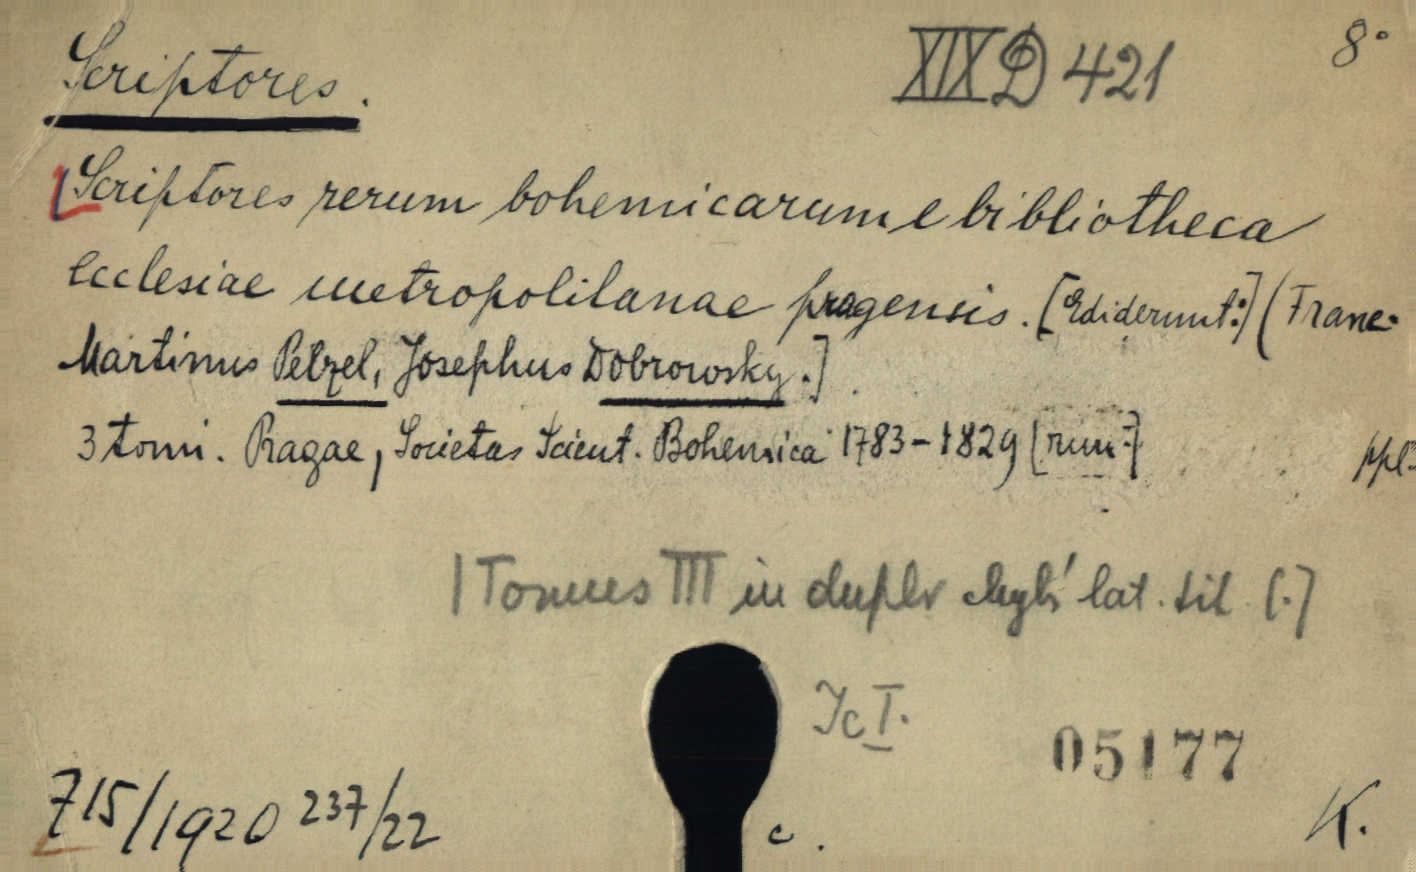 Scriptores.
XIX D 421
8°
Scriptores rerum bohemicarum e bibliotheca
ecclesiae metropolitanae pragensis. [Ediderunt:] (Franc.
Martinus Pelzel, Josephus Dobrowsky.]
3 tomi. Pragae, Societas Scient. Bohemica 1783-1829 [rum:]
ppl.
Tomus III in duplo chybí lat. tit. (.)
Jc I.
05177
715/1920 237/22
c.
K.